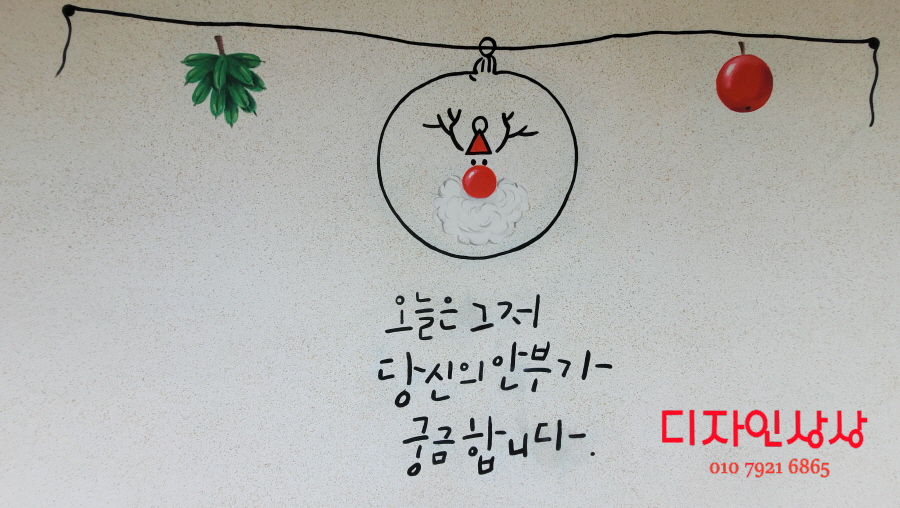 오늘은 그저
당신의 안부가
궁금합니다.
디자인상상
010 7921 6865